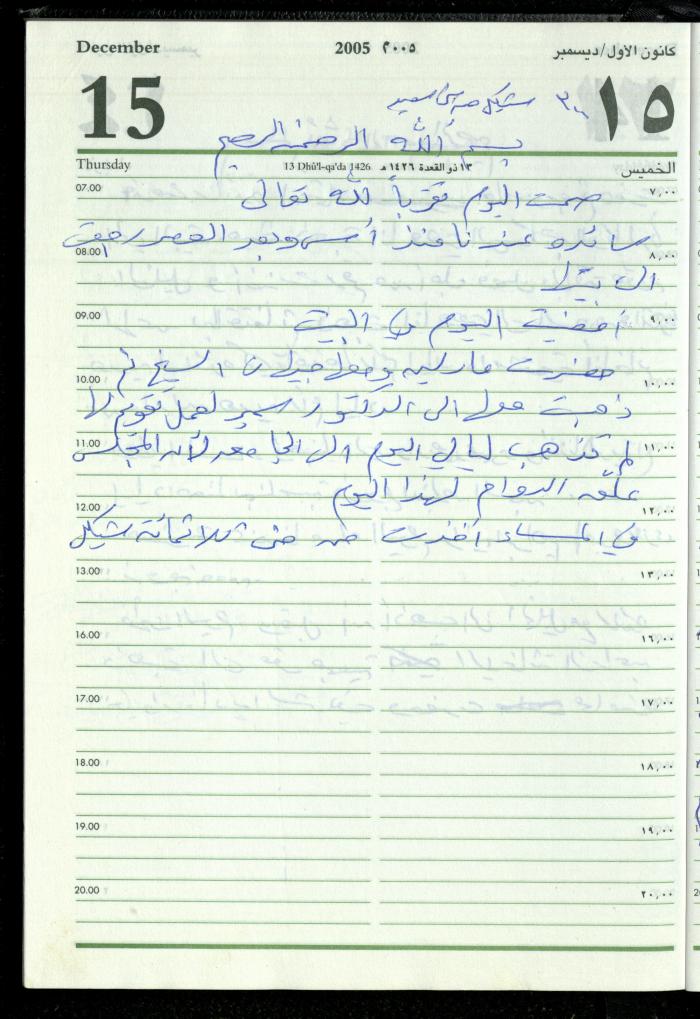 December 2005 ٢٠٠٥ كانون الأول/ديسمبر
15 ١٥
٣٠٠ شيكل من
بسم الله الرحمن الرحيم
Thursday 13 Dhû'l-qa'da 1426 ١٣ ذو القعدة ١٤٢٦ هـ الخميس
07.00 صمت اليوم تقرباً لله تعالى ٧,٠٠
سائده عندنا منذ أمس وبعد العصر رجعت
08.00 ٨,٠٠
الى بيتها
09.00 أمضيت اليوم في البيت ٩,٠٠
حضرت ومعها الشيخ ثم
10.00 ١٠,٠٠
ذهبت معها الى الدكتور سمير لعمل تقويم لها
11.00 لم تذهب ليالي اليوم الى الجامعه لأن المجلس ١١,٠٠
علّق الدوام لهذا اليوم
12.00 ١٢,٠٠
في المساء أخذت من ثلاثمائة شيكل
13.00 ١٣,٠٠
16.00 ١٦,٠٠
17.00 ١٧,٠٠
18.00 ١٨,٠٠
19.00 ١٩,٠٠
20.00 ٢٠,٠٠